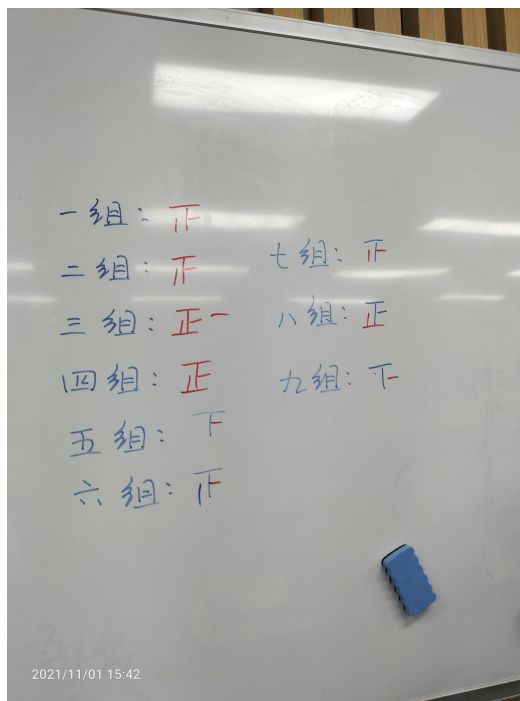 一组：正
二组：正
三组：正一
四组：正
五组：下
六组：正
七组：正
八组：正
九组：下
2021/11/01 15:42